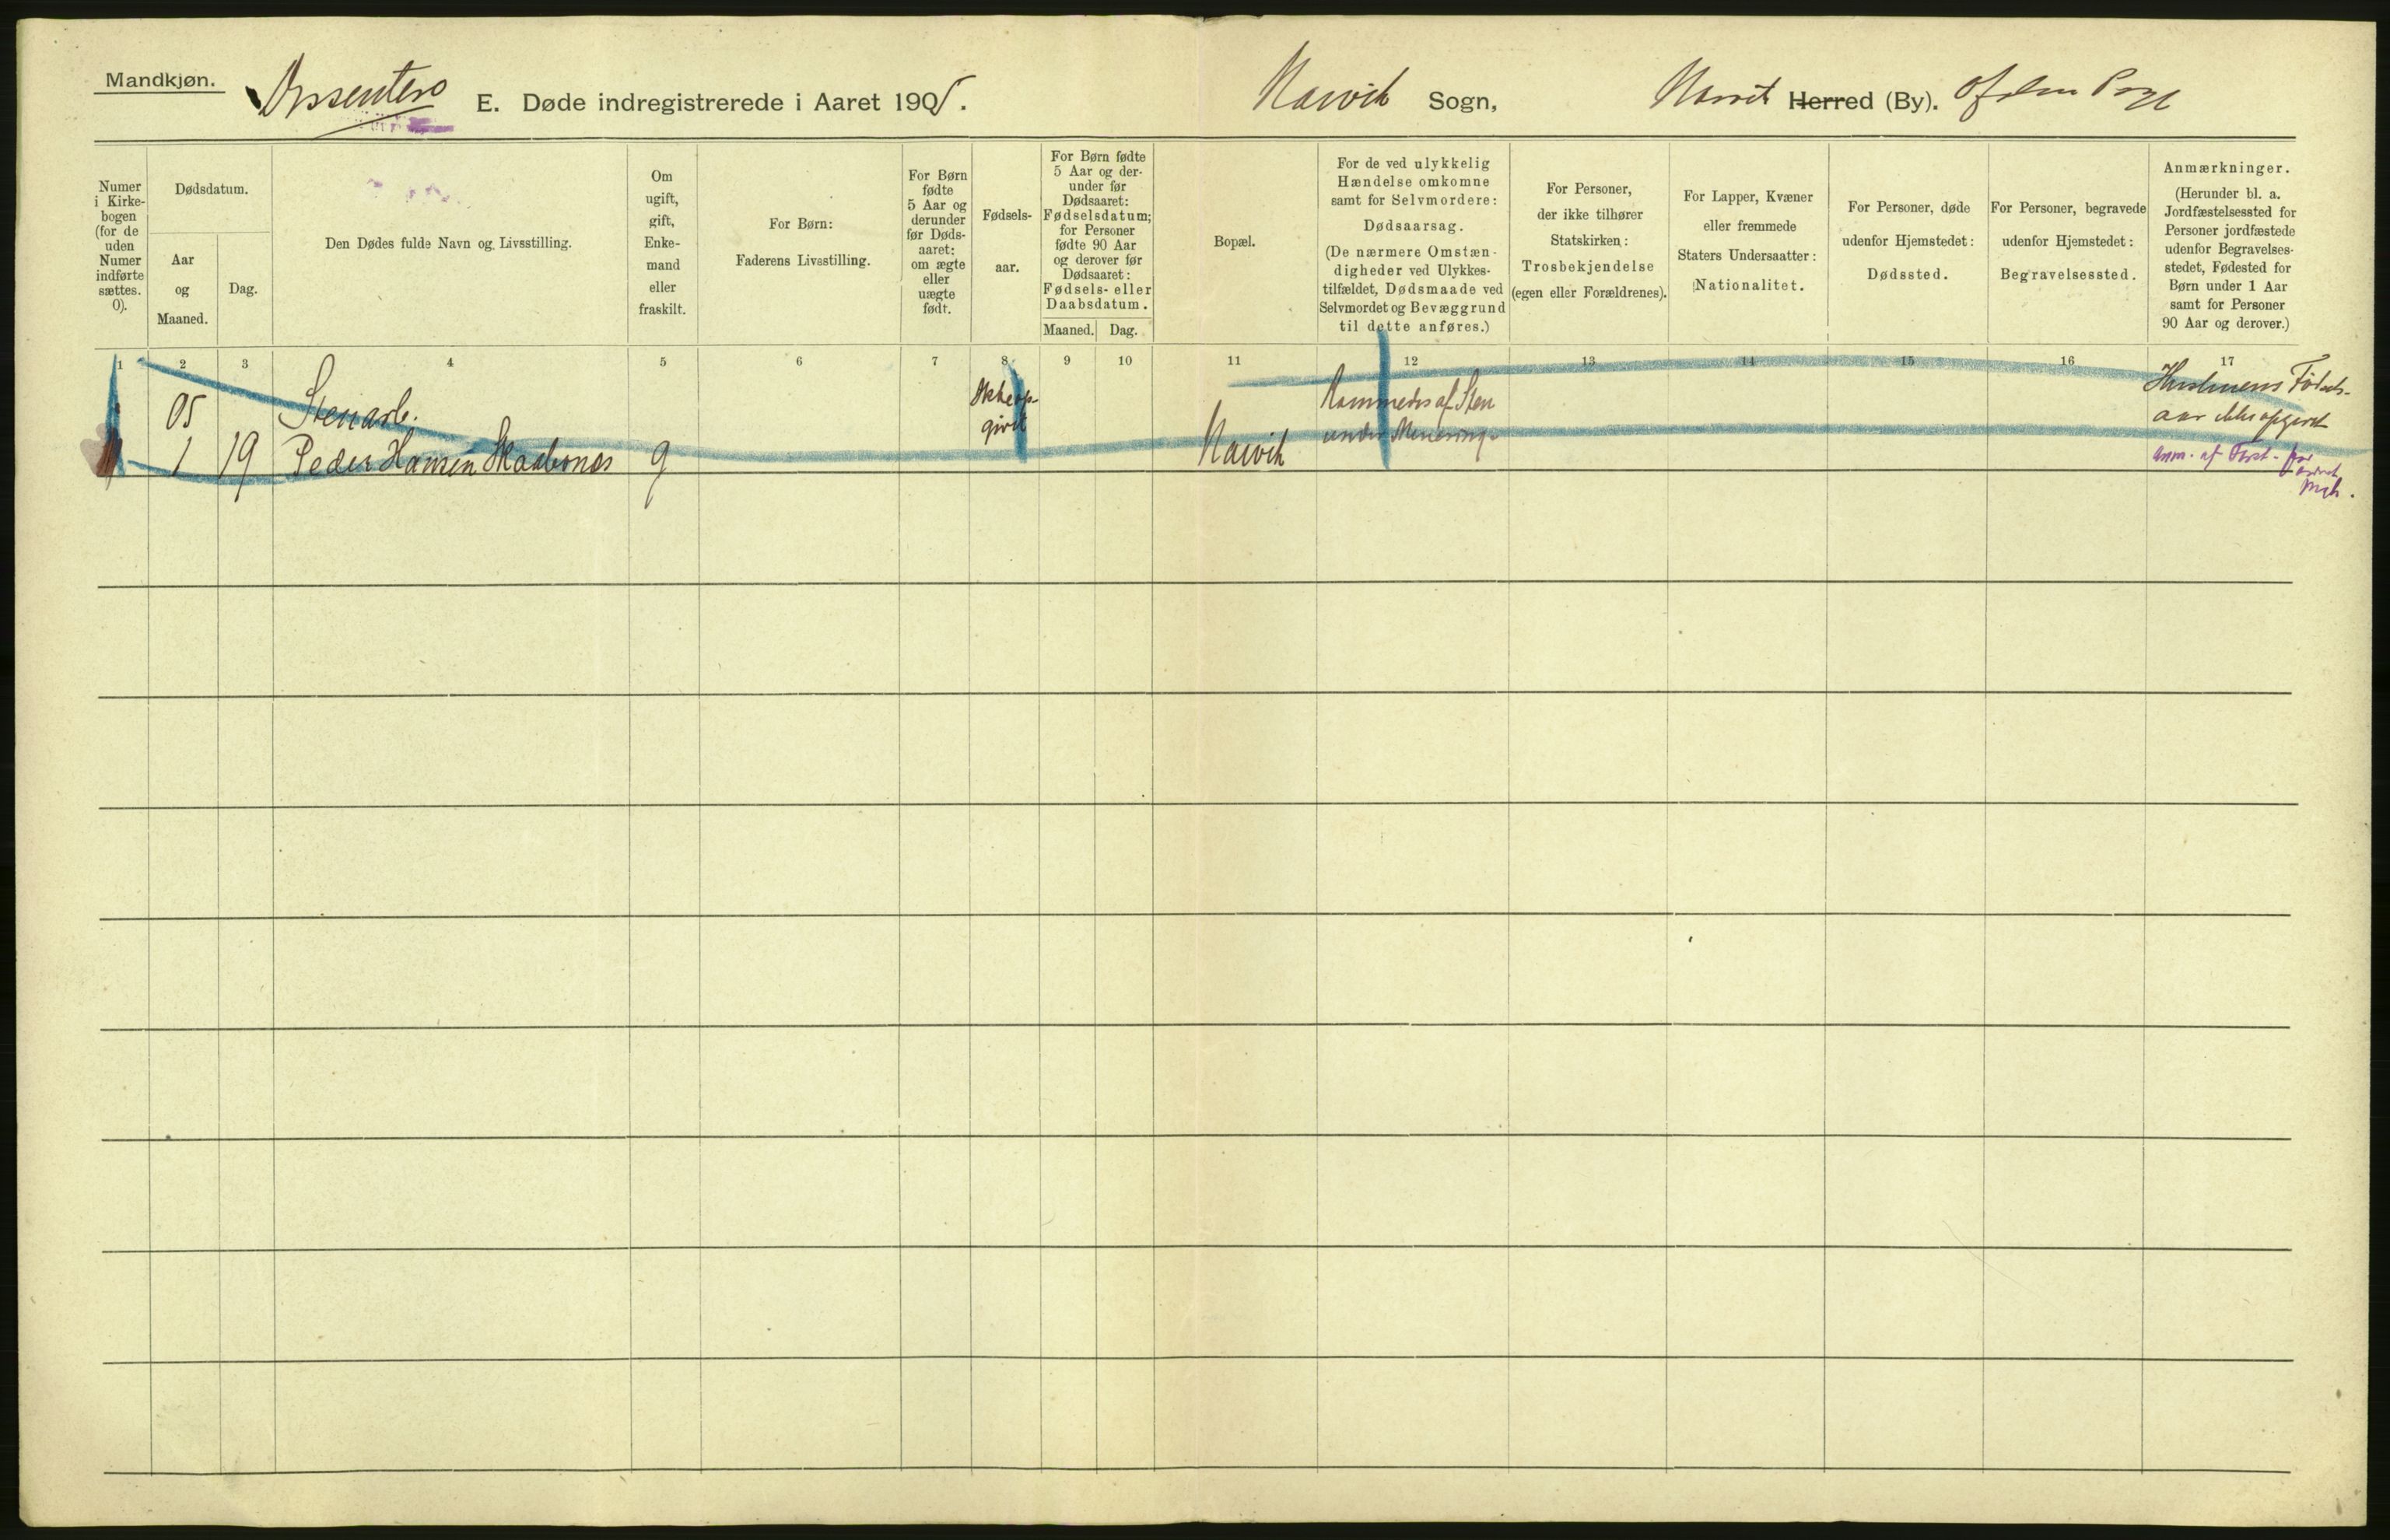 Mandkjøn.
Dissentere E. Døde indregistrerede i Aaret 1905. Narvik Sogn, Narvik Herred (By). Ofoten
Numer i Kirkebogen (for de uden Numer indførte sættes. 0).
Dødsdatum.
Aar og Maaned.
Dag.
Den Dødes fulde Navn og Livsstilling.
Om ugift, gift, Enkemand eller fraskilt.
For Børn: Faderens Livsstilling.
For Børn fødte 5 Aar og derunder før Dødsaaret: om ægte eller uægte født.
Fødselsaar.
For Børn fødte 5 Aar og derunder før Dødsaaret: Fødselsdatum; for Personer fødte 90 Aar og derover før Dødsaaret: Fødsels- eller Daabsdatum.
Maaned. Dag.
Bopæl.
For de ved ulykkelig Hændelse omkomne samt for Selvmordere: Dødsaarsag. (De nærmere Omstændigheder ved Ulykkestilfældet, Dødsmaade ved Selvmordet og Bevæggrund til dette anføres.)
For Personer, der ikke tilhører Statskirken: Trosbekjendelse (egen eller Forældrenes).
For Lapper, Kvæner eller fremmede Staters Undersaatter: Nationalitet.
For Personer, døde udenfor Hjemstedet: Dødssted.
For Personer, begravede udenfor Hjemstedet: Begravelsessted.
Anmærkninger. (Herunder bl. a. Jordfæstelsessted for Personer jordfæstede udenfor Begravelsesstedet, Fødested for Børn under 1 Aar samt for Personer 90 Aar og derover.)
1 2 3 4 5 6 7 8 9 10 11 12 13 14 15 16 17
05 Stenarb. Ikke op- Rammedes af Sten Hustruens Fødsels-
givet under Minering aar ikke opgivet
1 1 19 Peder Hansen Skaabones g Narvik